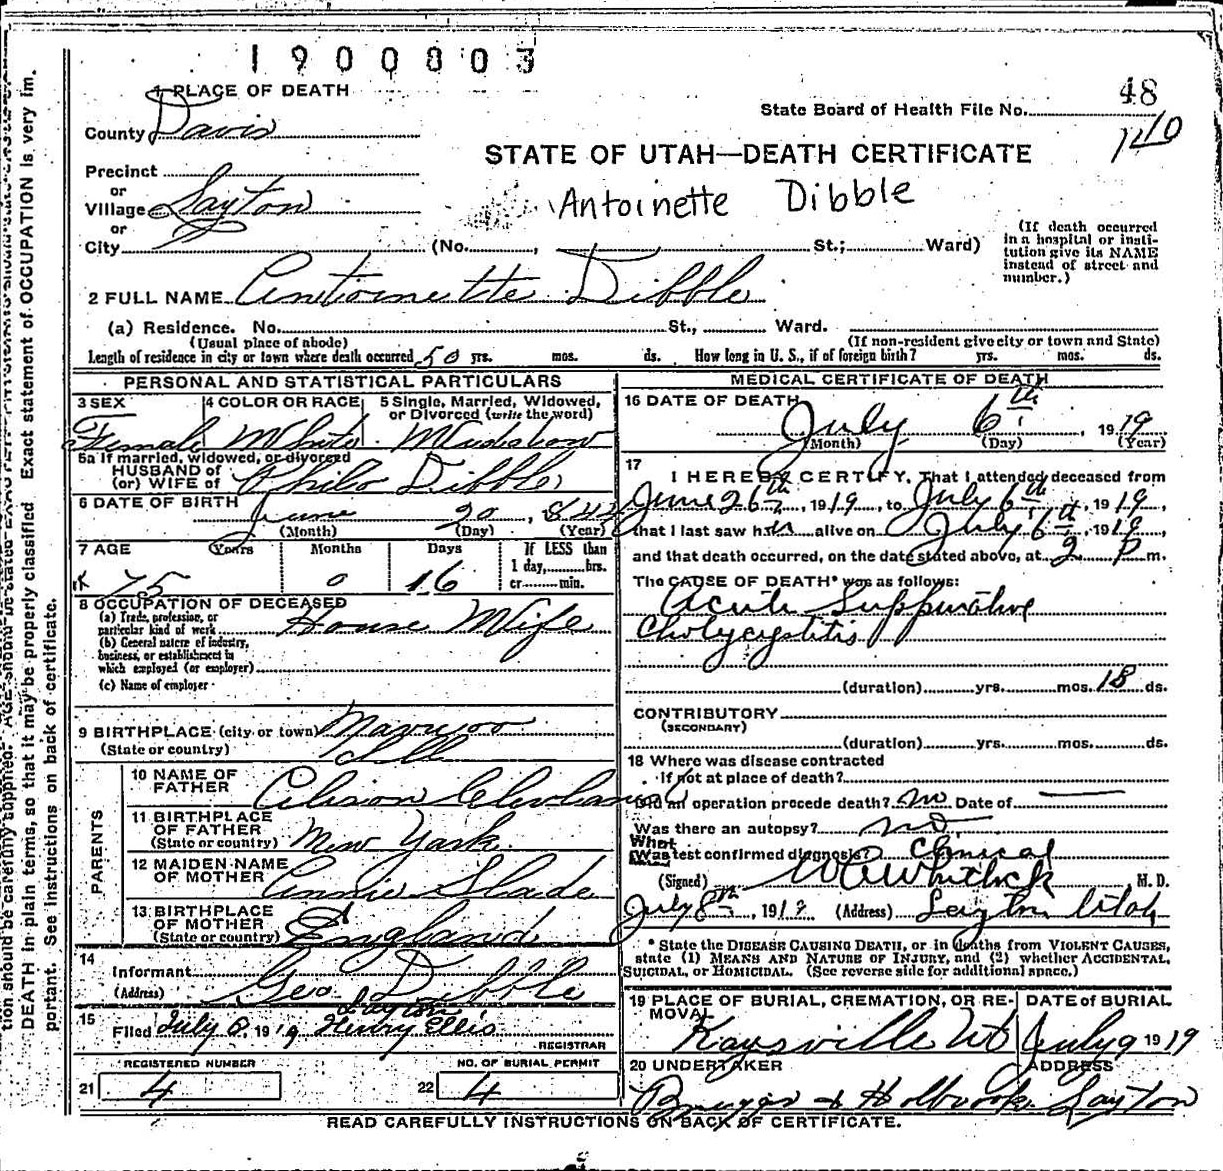 1900803
1 PLACE OF DEATH
State Board of Health File No. 48
County Davis
1410
STATE OF UTAH—DEATH CERTIFICATE
Precinct
or
Village Layton
Antoinette Dibble
or
City (No. , St.; Ward)
(If death occurred
in a hospital or insti-
tution give its NAME
instead of street and
number.)
2 FULL NAME Antoinette Dibble
(a) Residence. No. St., Ward.
(Usual place of abode) (If non-resident give city or town and State)
Length of residence in city or town where death occurred 50 yrs. mos. ds. How long in U. S., if of foreign birth? yrs. mos. ds.
PERSONAL AND STATISTICAL PARTICULARS
3 SEX 4 COLOR OR RACE 5 Single, Married, Widowed,
or Divorced (write the word)
Female White Widow
5a If married, widowed, or divorced
HUSBAND of
(or) WIFE of Philo Dibble
6 DATE OF BIRTH
June 20, 
(Month) (Day) (Year)
7 AGE Years Months Days If LESS than
1 day, hrs.
or min.
75 0 16
8 OCCUPATION OF DECEASED
(a) Trade, profession, or
particular kind of work House Wife
(b) General nature of industry,
business, or establishment in
which employed (or employer)
(c) Name of employer
9 BIRTHPLACE (city or town)
(State or country) Ill
PARENTS
10 NAME OF
FATHER
11 BIRTHPLACE
OF FATHER
(State or country) New York
12 MAIDEN NAME
OF MOTHER Annie Slade
13 BIRTHPLACE
OF MOTHER
(State or country) England
14
Informant Geo. Dibble
(Address) Layton
15
Filed July 8, 1919 Henry Ellis
REGISTRAR
REGISTERED NUMBER NO. OF BURIAL PERMIT
21 4 22 4
MEDICAL CERTIFICATE OF DEATH
16 DATE OF DEATH
July 6th, 1919
(Month) (Day) (Year)
17
I HEREBY CERTIFY, That I attended deceased from
June 26th, 1919, to July 6th, 1919,
that I last saw her alive on July 6th, 1919,
and that death occurred, on the date stated above, at 2 P m.
The CAUSE OF DEATH* was as follows:
Acute Suppurative
Cholycystitis
(duration) yrs. mos. 18 ds.
CONTRIBUTORY
(SECONDARY)
(duration) yrs. mos. ds.
18 Where was disease contracted
If not at place of death?
Did an operation precede death? no Date of —
Was there an autopsy? no
What
Was test confirmed diagnosis? Clinical
(Signed) W A Whitlock M. D.
July 8th, 1919 (Address) Layton Utah
* State the DISEASE CAUSING DEATH, or in deaths from VIOLENT CAUSES,
state (1) MEANS AND NATURE OF INJURY, and (2) whether ACCIDENTAL,
SUICIDAL, or HOMICIDAL. (See reverse side for additional space.)
19 PLACE OF BURIAL, CREMATION, OR RE-
MOVAL DATE of BURIAL
Kaysville Ut July 9 1919
20 UNDERTAKER ADDRESS
& Holbrook Layton
READ CAREFULLY INSTRUCTIONS ON BACK OF CERTIFICATE.
tion should be carefully supplied.
DEATH in plain terms, so that it may be properly classified Exact statement of OCCUPATION is very im.
portant. See instructions on back of certificate.